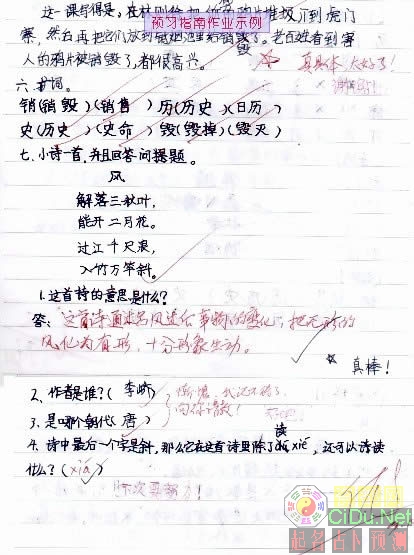 预习指南作业示例
害, 然后再把它们放到销烟池里给销毁了。老百姓看到害
人的鸦片被销毁了,都很高兴。 真具体 太好了!
六、扩词。
销(销毁)(销售) 历(历史)(日历)
史(历史)(史命) 毁(毁掉)(毁灭)
七、小诗一首,并且回答问题。
风
解落三秋叶,
能开二月花。
过江千尺浪,
入竹万竿斜。
1.这首诗的意思是什么?
答: 这首诗通过写风造化事物的变化,把无形的
风化为有形,十分形象生动。
真棒!
2、作者是谁?(李峤)
3、是哪个朝代(唐) 向你
4、诗中最后一个字是斜,那么它在这首诗里除了读 xié, 还可以读
什么?(xiá)
下次要努力!
CiDu.Net
起名占卜预测